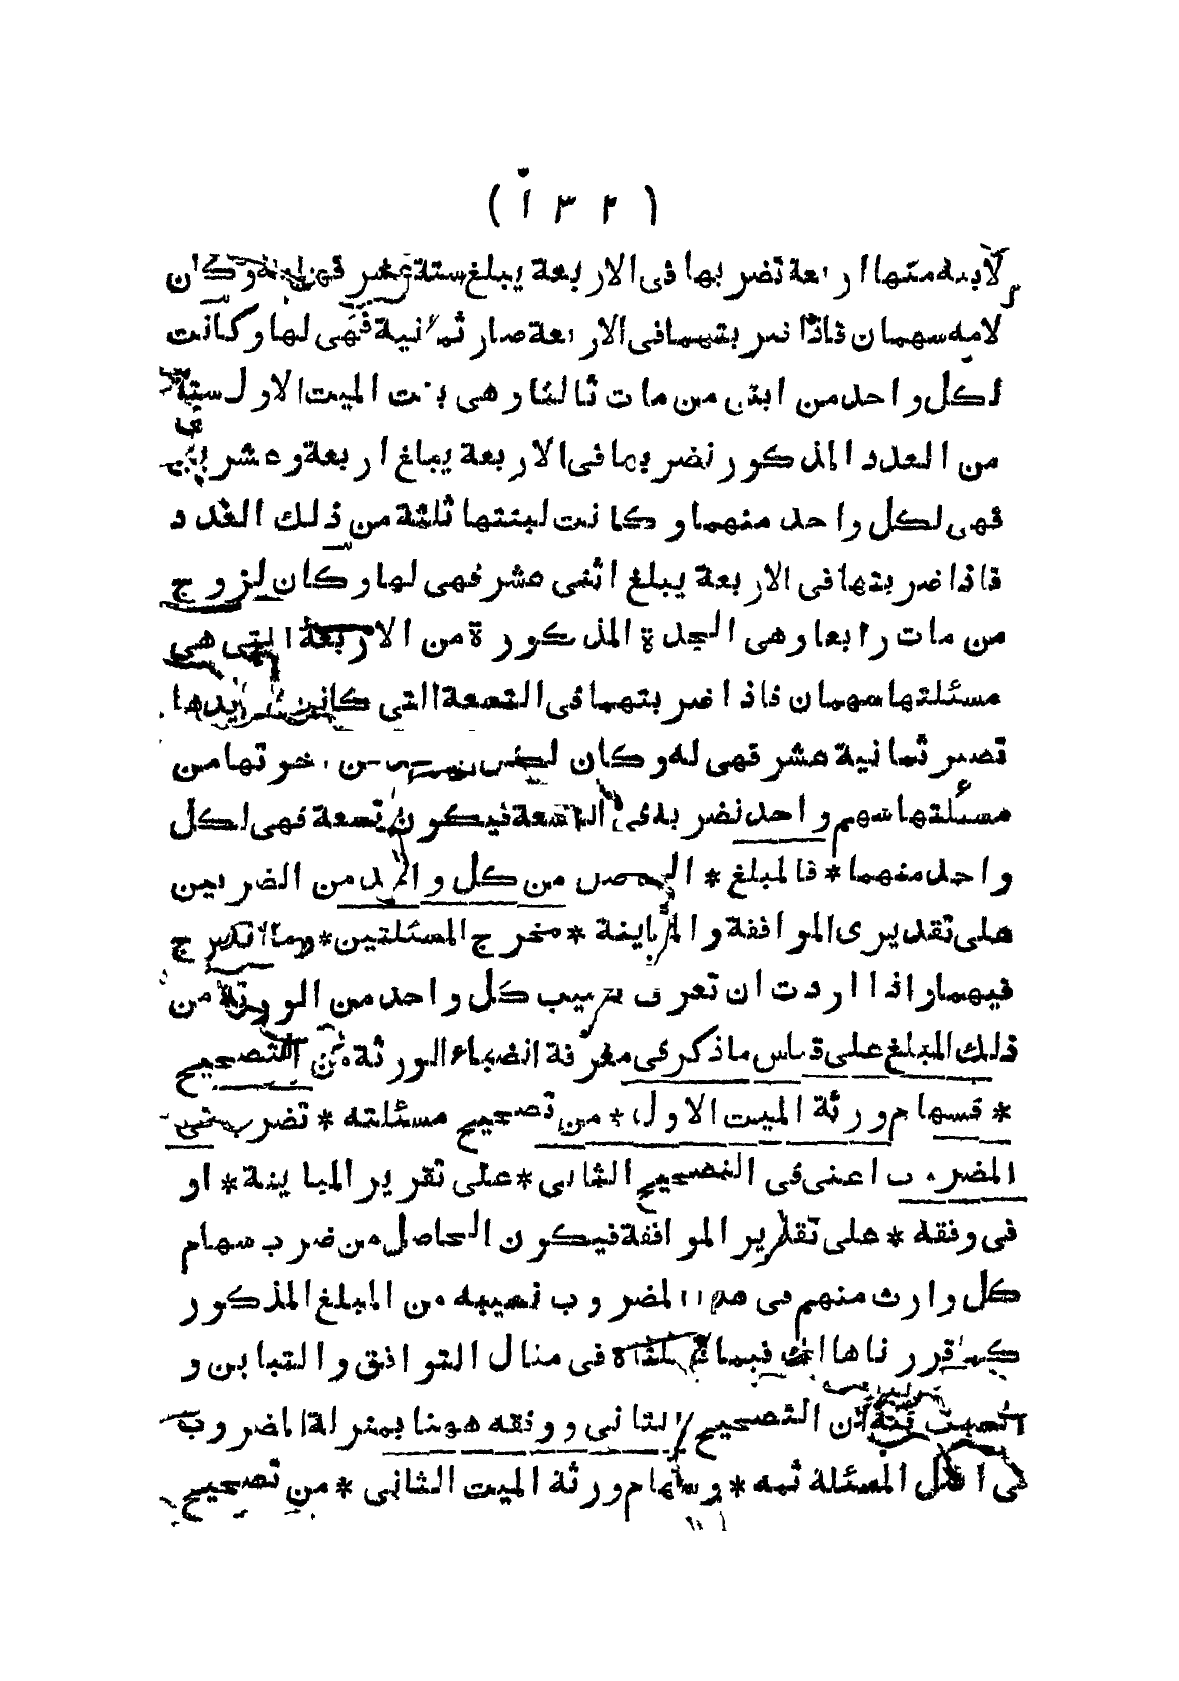 ( ١٣٢ )
لابنه منها اربعة تضربها فى الاربعة يبلغ ستة عشر فهى له وكان
لامه سهمان فاذا ضربتهما فى الاربعة صار ثمانية فهى لها وكانت
لكل واحد من ابنى من مات ثالثا وهى بنت الميت الاول ستة
من العدد المذكور نضربها فى الاربعة يبلغ اربعة وعشرين
فهى لكل واحد منهما وكانت لبنتها ثلثة من ذلك العدد
فاذا ضربتها فى الاربعة يبلغ اثنى عشر فهى لها وكان لزوج
من مات رابعا وهى الجدة المذكورة من الاربعة التى هى
مسئلتها سهمان فاذا ضربتهما فى التسعة التى كانت بيدها
تصير ثمانية عشر فهى له وكان لكل من اخوتها من
مسئلتها سهم واحد نضربه فى التسعة فيكون تسعة فهى لكل
واحد منهما * فالمبلغ * الحاصل من كل واحد من الضربين
على تقديرى الموافقة والمباينة * مخرج المسئلتين * وما اندرج
فيهما واذا اردت ان تعرف نصيب كل واحد من الورثة من
ذلك المبلغ على قياس ما ذكر فى معرفة انصباء الورثة من التصحيح
* فسهام ورثة الميت الاول * من تصحيح مسئلته * تضرب فى
المضروب اعنى فى التصحيح الثانى * على تقرير المباينة * او
فى وفقه * على تقدير الموافقة فيكون الحاصل من ضرب سهام
كل وارث منهم فى هذا المضروب نصيبه من المبلغ المذكور
كما قررناها فيما فى مثال التوافق والتباين و
لان التصحيح الثانى ووفقه ههنا بمنزلة المضروب
فى اصل المسئلة ثمه * وسهام ورثة الميت الثانى * من تصحيح